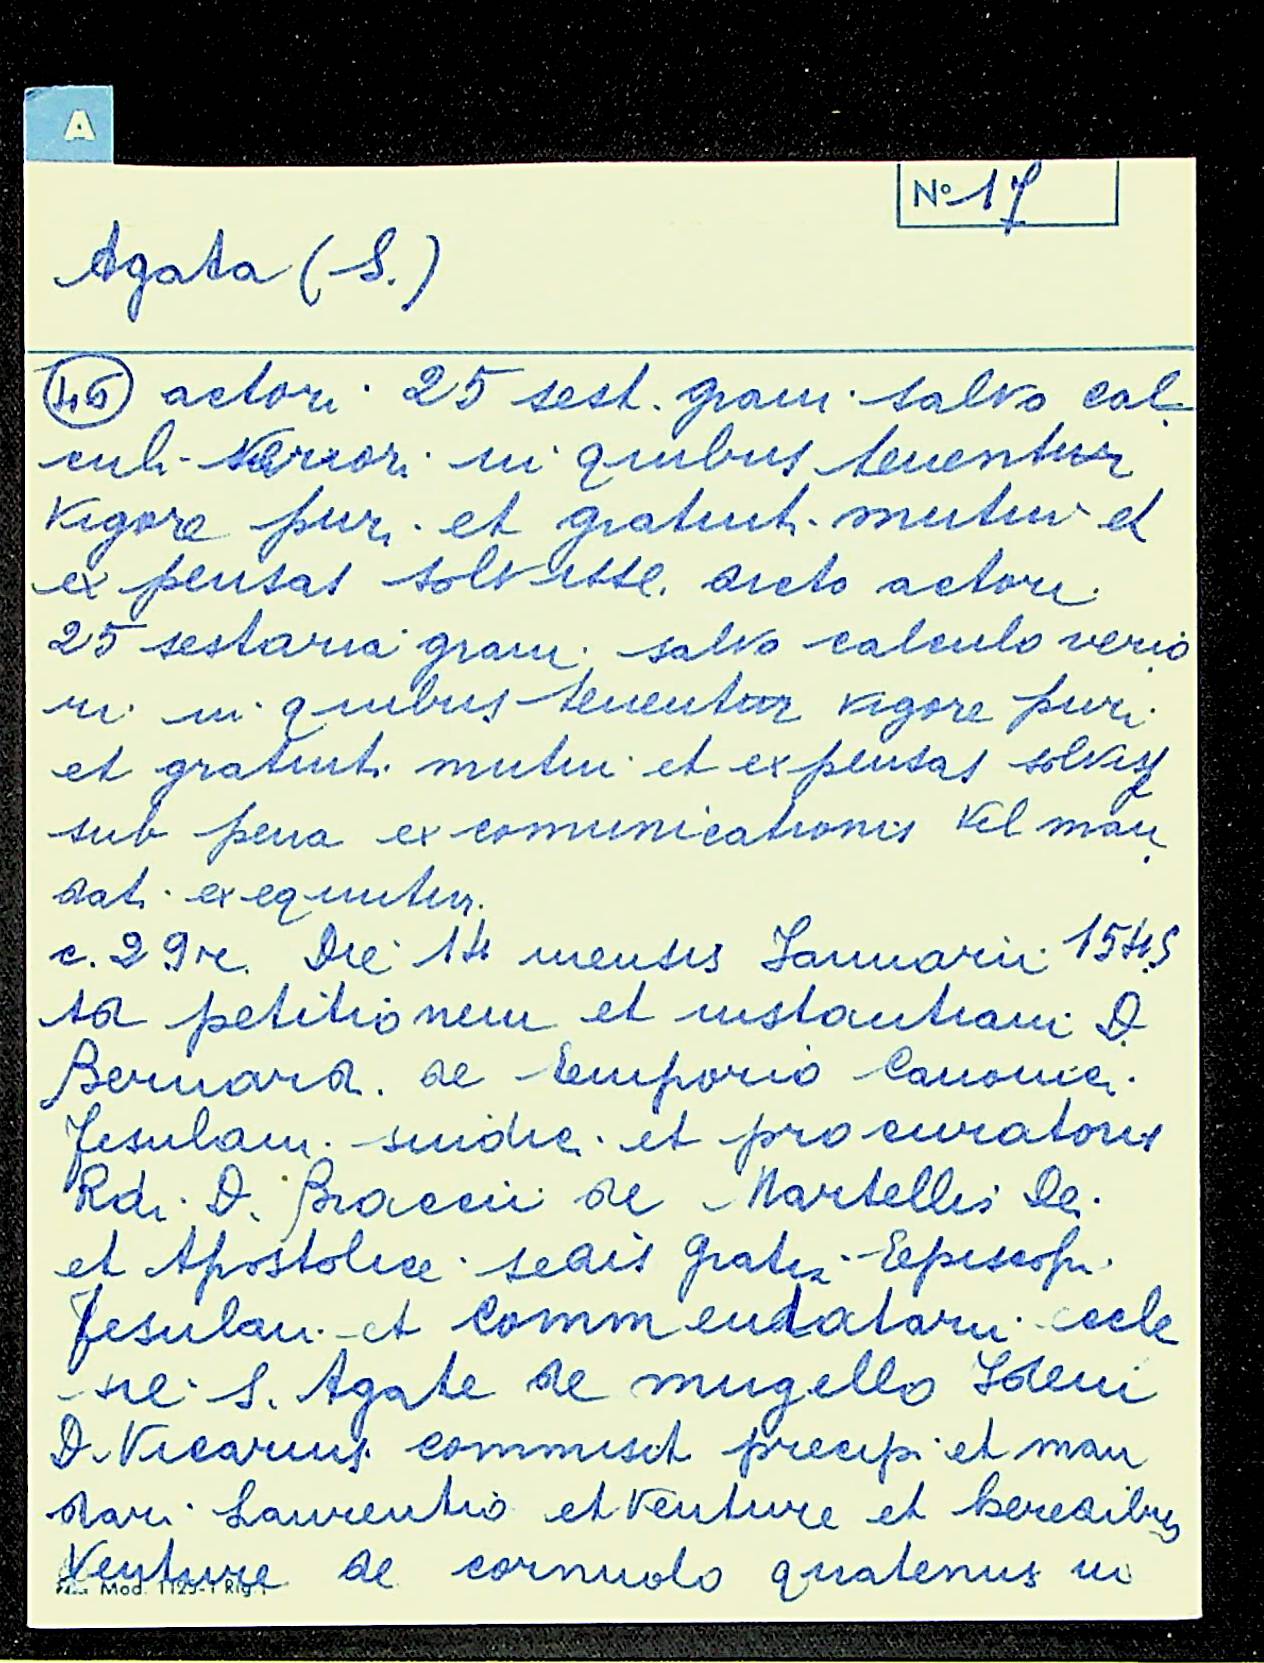 A
Nº 17
Agata (S.)
46 actori 25 sest. gram. salvo cal
culi veriori in quibus tenentur
vigore pur. et gratuit. mutui et
expensas solvisse. dicto actori.
25 sestaria gram. salvo calculo verio
ri in quibus tenentur vigore puri
et gratuit. mutui et expensas
sub pena excomunicationis vel man
dati exequutur.
c. 29r. Die 14 mensis Januarii 1545
Ad petitionem et instantiam D.
Bernard. de Emporio Canonic.
Fesulan. sindic. et procuratoris
Rdi. D. Braccii de Martellis De.
et Apostolice sedis grati. Episcop.
Fesulan. et Commendatarii eccle
sie S. Agate de mugello Idem
D. Vicarius commisit precipi et man
dari Laurentio et Venture et heredibus
Venture de cornuolo quatenus in
Mod. 1125-1 Rig.